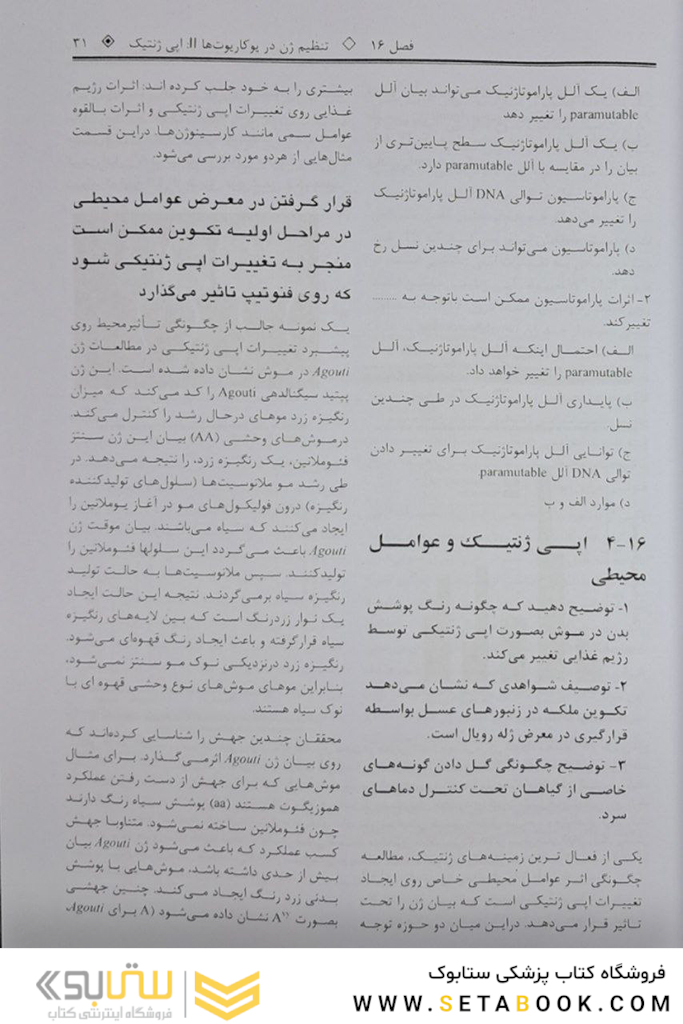 فصل ۱۶ ◇ تنظیم ژن در یوکاریوت‌ها II: اپی ژنتیک ◈ ۳۱
الف) یک آلل پاراموتاژنیک می‌تواند بیان آلل
paramutable را تغییر دهد
ب) یک آلل پاراموتاژنیک سطح پایین‌تری از
بیان را در مقایسه با آلل paramutable دارد.
ج) پاراموتاسیون توالی DNA آلل پاراموتاژنیک
را تغییر می‌دهد.
د) پاراموتاسیون می‌تواند برای چندین نسل رخ
دهد.
۲- اثرات پاراموتاسیون ممکن است باتوجه به .........
تغییر کند.
الف) احتمال اینکه آلل پاراموتاژنیک، آلل
paramutable را تغییر خواهد داد.
ب) پایداری آلل پاراموتاژنیک در طی چندین
نسل
ج) توانایی آلل پاراموتاژنیک برای تغییر دادن
توالی DNA آلل paramutable
د) موارد الف و ب
۱۶-۴ اپی ژنتیک و عوامل
محیطی
۱- توضیح دهید که چگونه رنگ پوشش
بدن در موش بصورت اپی ژنتیکی توسط
رژیم غذایی تغییر می‌کند.
۲- توصیف شواهدی که نشان می‌دهد
تکوین ملکه در زنبورهای عسل بواسطه
قرارگیری در معرض ژله رویال است.
۳- توضیح چگونگی گل دادن گونه‌های
خاصی از گیاهان تحت کنترل دماهای
سرد.
یکی از فعال ترین زمینه‌های ژنتیک، مطالعه
چگونگی اثر عوامل محیطی خاص روی ایجاد
تغییرات اپی ژنتیکی است که بیان ژن را تحت
تاثیر قرار می‌دهد. دراین میان دو حوزه توجه
بیشتری را به خود جلب کرده اند: اثرات رژیم
غذایی روی تغییرات اپی ژنتیکی و اثرات بالقوه
عوامل سمی مانند کارسینوژن‌ها. دراین قسمت
مثال‌هایی از هردو مورد بررسی می‌شود.
قرار گرفتن در معرض عوامل محیطی
در مراحل اولیه تکوین ممکن است
منجر به تغییرات اپی ژنتیکی شود
که روی فنوتیپ تاثیر می‌گذارد
یک نمونه جالب از چگونگی تأثیرمحیط روی
پیشبرد تغییرات اپی ژنتیکی در مطالعات ژن
Agouti در موش نشان داده شده است. این ژن
پپتید سیگنالدهی Agouti را کد می‌کند که میزان
رنگیزه زرد موهای درحال رشد را کنترل می‌کند.
درموش‌های وحشی (AA) بیان این ژن سنتز
فئوملانین، یک رنگیزه زرد، را نتیجه می‌دهد. در
طی رشد مو ملانوسیت‌ها (سلول‌های تولیدکننده
رنگیزه) درون فولیکول‌های مو در آغاز یوملانین را
ایجاد می‌کنند که سیاه می‌باشند. بیان موقت ژن
Agouti باعث می‌گردد این سلولها فئوملانین را
تولیدکنند. سپس ملانوسیت‌ها به حالت تولید
رنگیزه سیاه برمی‌گردند. نتیجه این حالت ایجاد
یک نوار زردرنگ است که بین لایه‌های رنگیزه
سیاه قرارگرفته و باعث ایجاد رنگ قهوه‌ای می‌شود.
رنگیزه زرد درنزدیکی نوک مو سنتز نمی‌شود،
بنابراین موهای موش‌های نوع وحشی قهوه ای با
نوک سیاه هستند.
محققان چندین جهش را شناسایی کرده‌اند که
روی بیان ژن Agouti اثرمی‌گذارد. برای مثال
موش‌هایی که برای جهش از دست رفتن عملکرد
هموزیگوت هستند (aa) پوشش سیاه رنگ دارند
چون فئوملانین ساخته نمی‌شود. متناوبا جهش
کسب عملکرد که باعث می‌شود ژن Agouti بیان
بیش از حدی داشته باشد، موش‌هایی با پوشش
بدنی زرد رنگ ایجاد می‌کند. چنین جهشی
بصورت نشان داده می‌شود (A برای Agouti
فروشگاه کتاب پزشکی ستابوک
WWW.SETABOOK.COM
ستابوک
فروشگاه اینترنتی کتاب